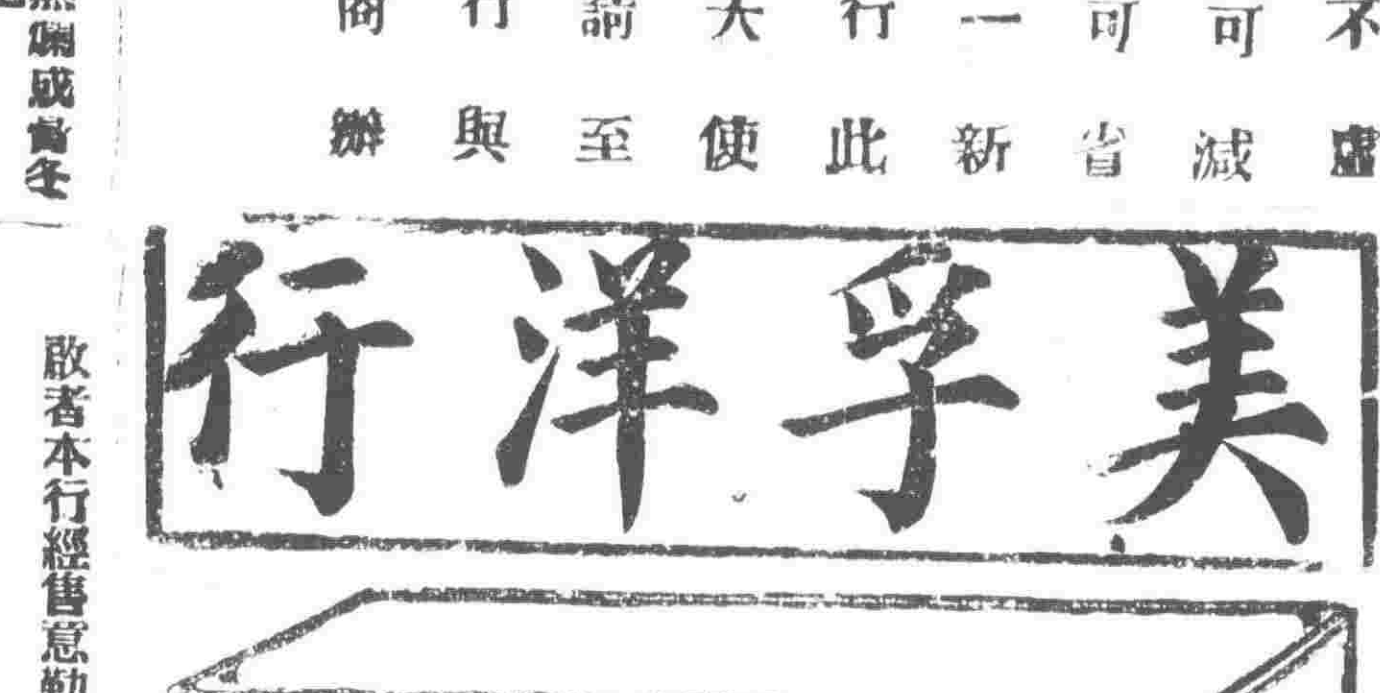 不虛
可減
可省
一新
行此
大使
請至
行與
商辦
美孚洋行
爛成
冬
啟者本行經售意勒